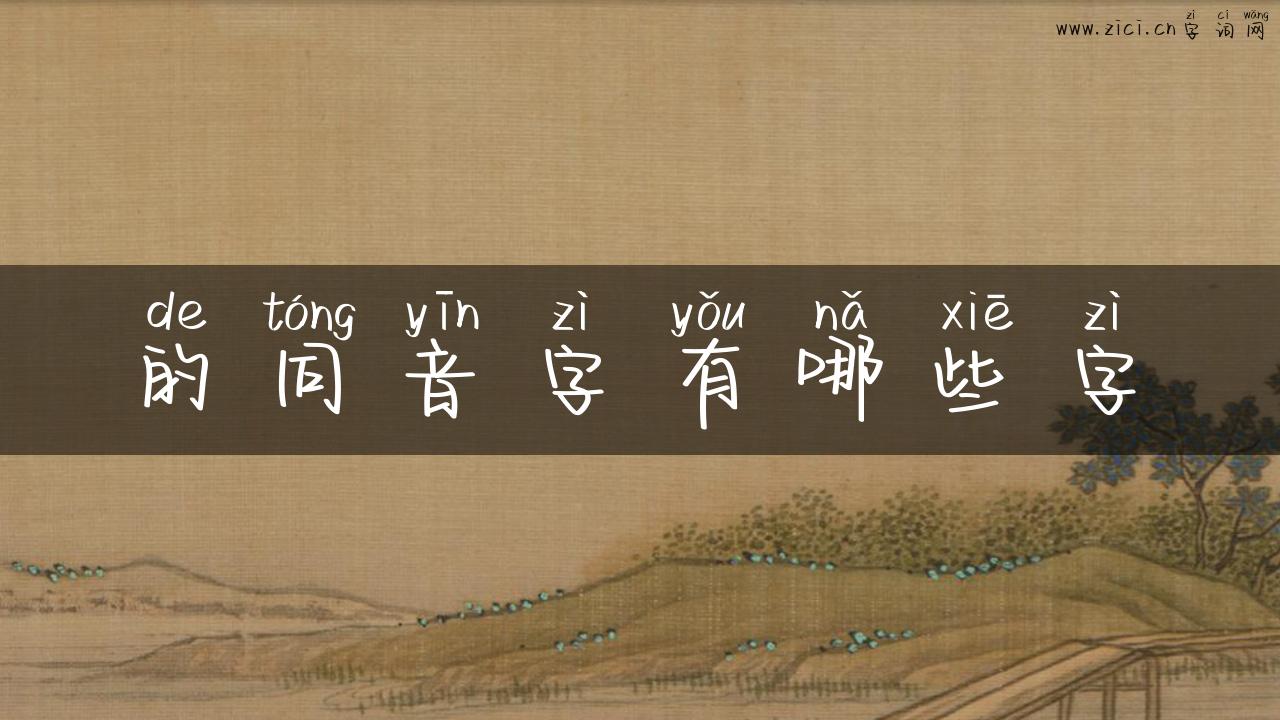 zì cí wǎng
www.zici.cn字词网
de tóng yīn zì yǒu nǎ xiē zì
的同音字有哪些字